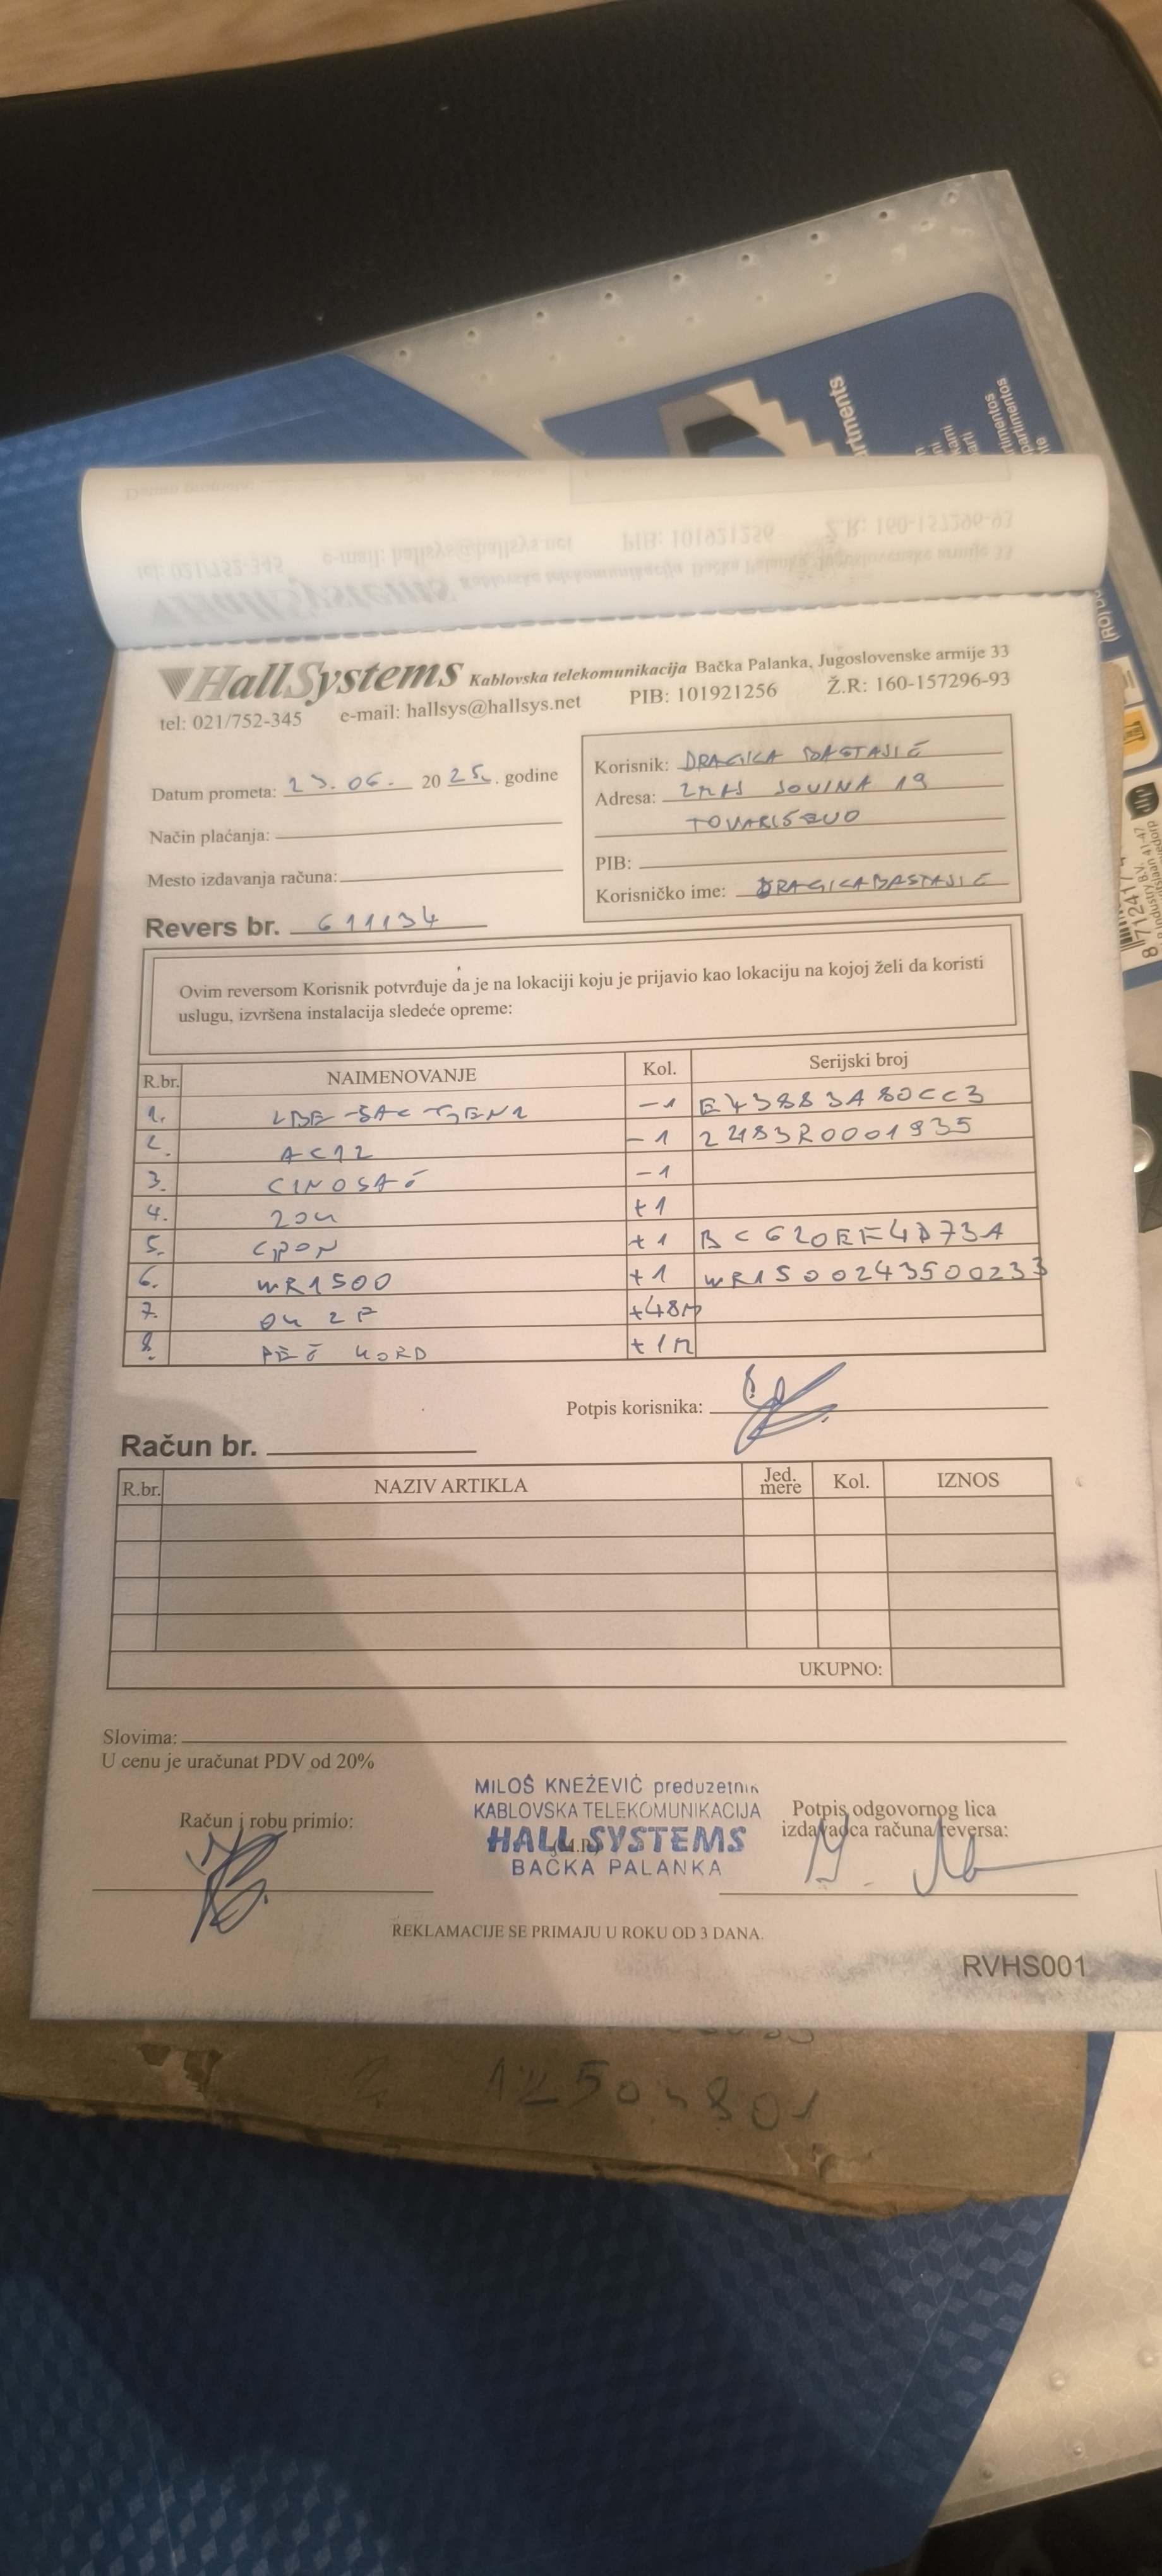 HallSystems Kablovska telekomunikacija Bačka Palanka, Jugoslovenske armije 33
tel: 021/752-345 e-mail: hallsys@hallsys.net PIB: 101921256 Ž.R: 160-157296-93
Datum prometa: 23.06. 2025. godine
Način plaćanja:
Mesto izdavanja računa:
Korisnik: DRAGICA BASTAJIĆ
Adresa: ZMAJ JOVINA 19
TOVARIŠEVO
PIB:
Korisničko ime: DRAGICABASTAJIC
Revers br. 611134
Ovim reversom Korisnik potvrđuje da je na lokaciji koju je prijavio kao lokaciju na kojoj želi da koristi
uslugu, izvršena instalacija sledeće opreme:
R.br. NAIMENOVANJE Kol. Serijski broj
1. LBE-5AC-GEN2 -1 E43883A80CC3
2. AC12 -1 2483R0001935
3. -1
4. ZOK +1
5. GPON +1 BC620EF4D73A
6. WR1500 +1 WR1500243500233
7. OK 2F +48M
8. PEČ KORD +1M
Potpis korisnika:
Račun br.
R.br. NAZIV ARTIKLA Jed. mere Kol. IZNOS
UKUPNO:
Slovima:
U cenu je uračunat PDV od 20%
Račun i robu primio:
MILOŠ KNEŽEVIĆ preduzetnik
KABLOVSKA TELEKOMUNIKACIJA
HALL SYSTEMS
BAČKA PALANKA
(M.P.)
Potpis odgovornog lica
izdavaoca računa/reversa:
REKLAMACIJE SE PRIMAJU U ROKU OD 3 DANA.
RVHS001